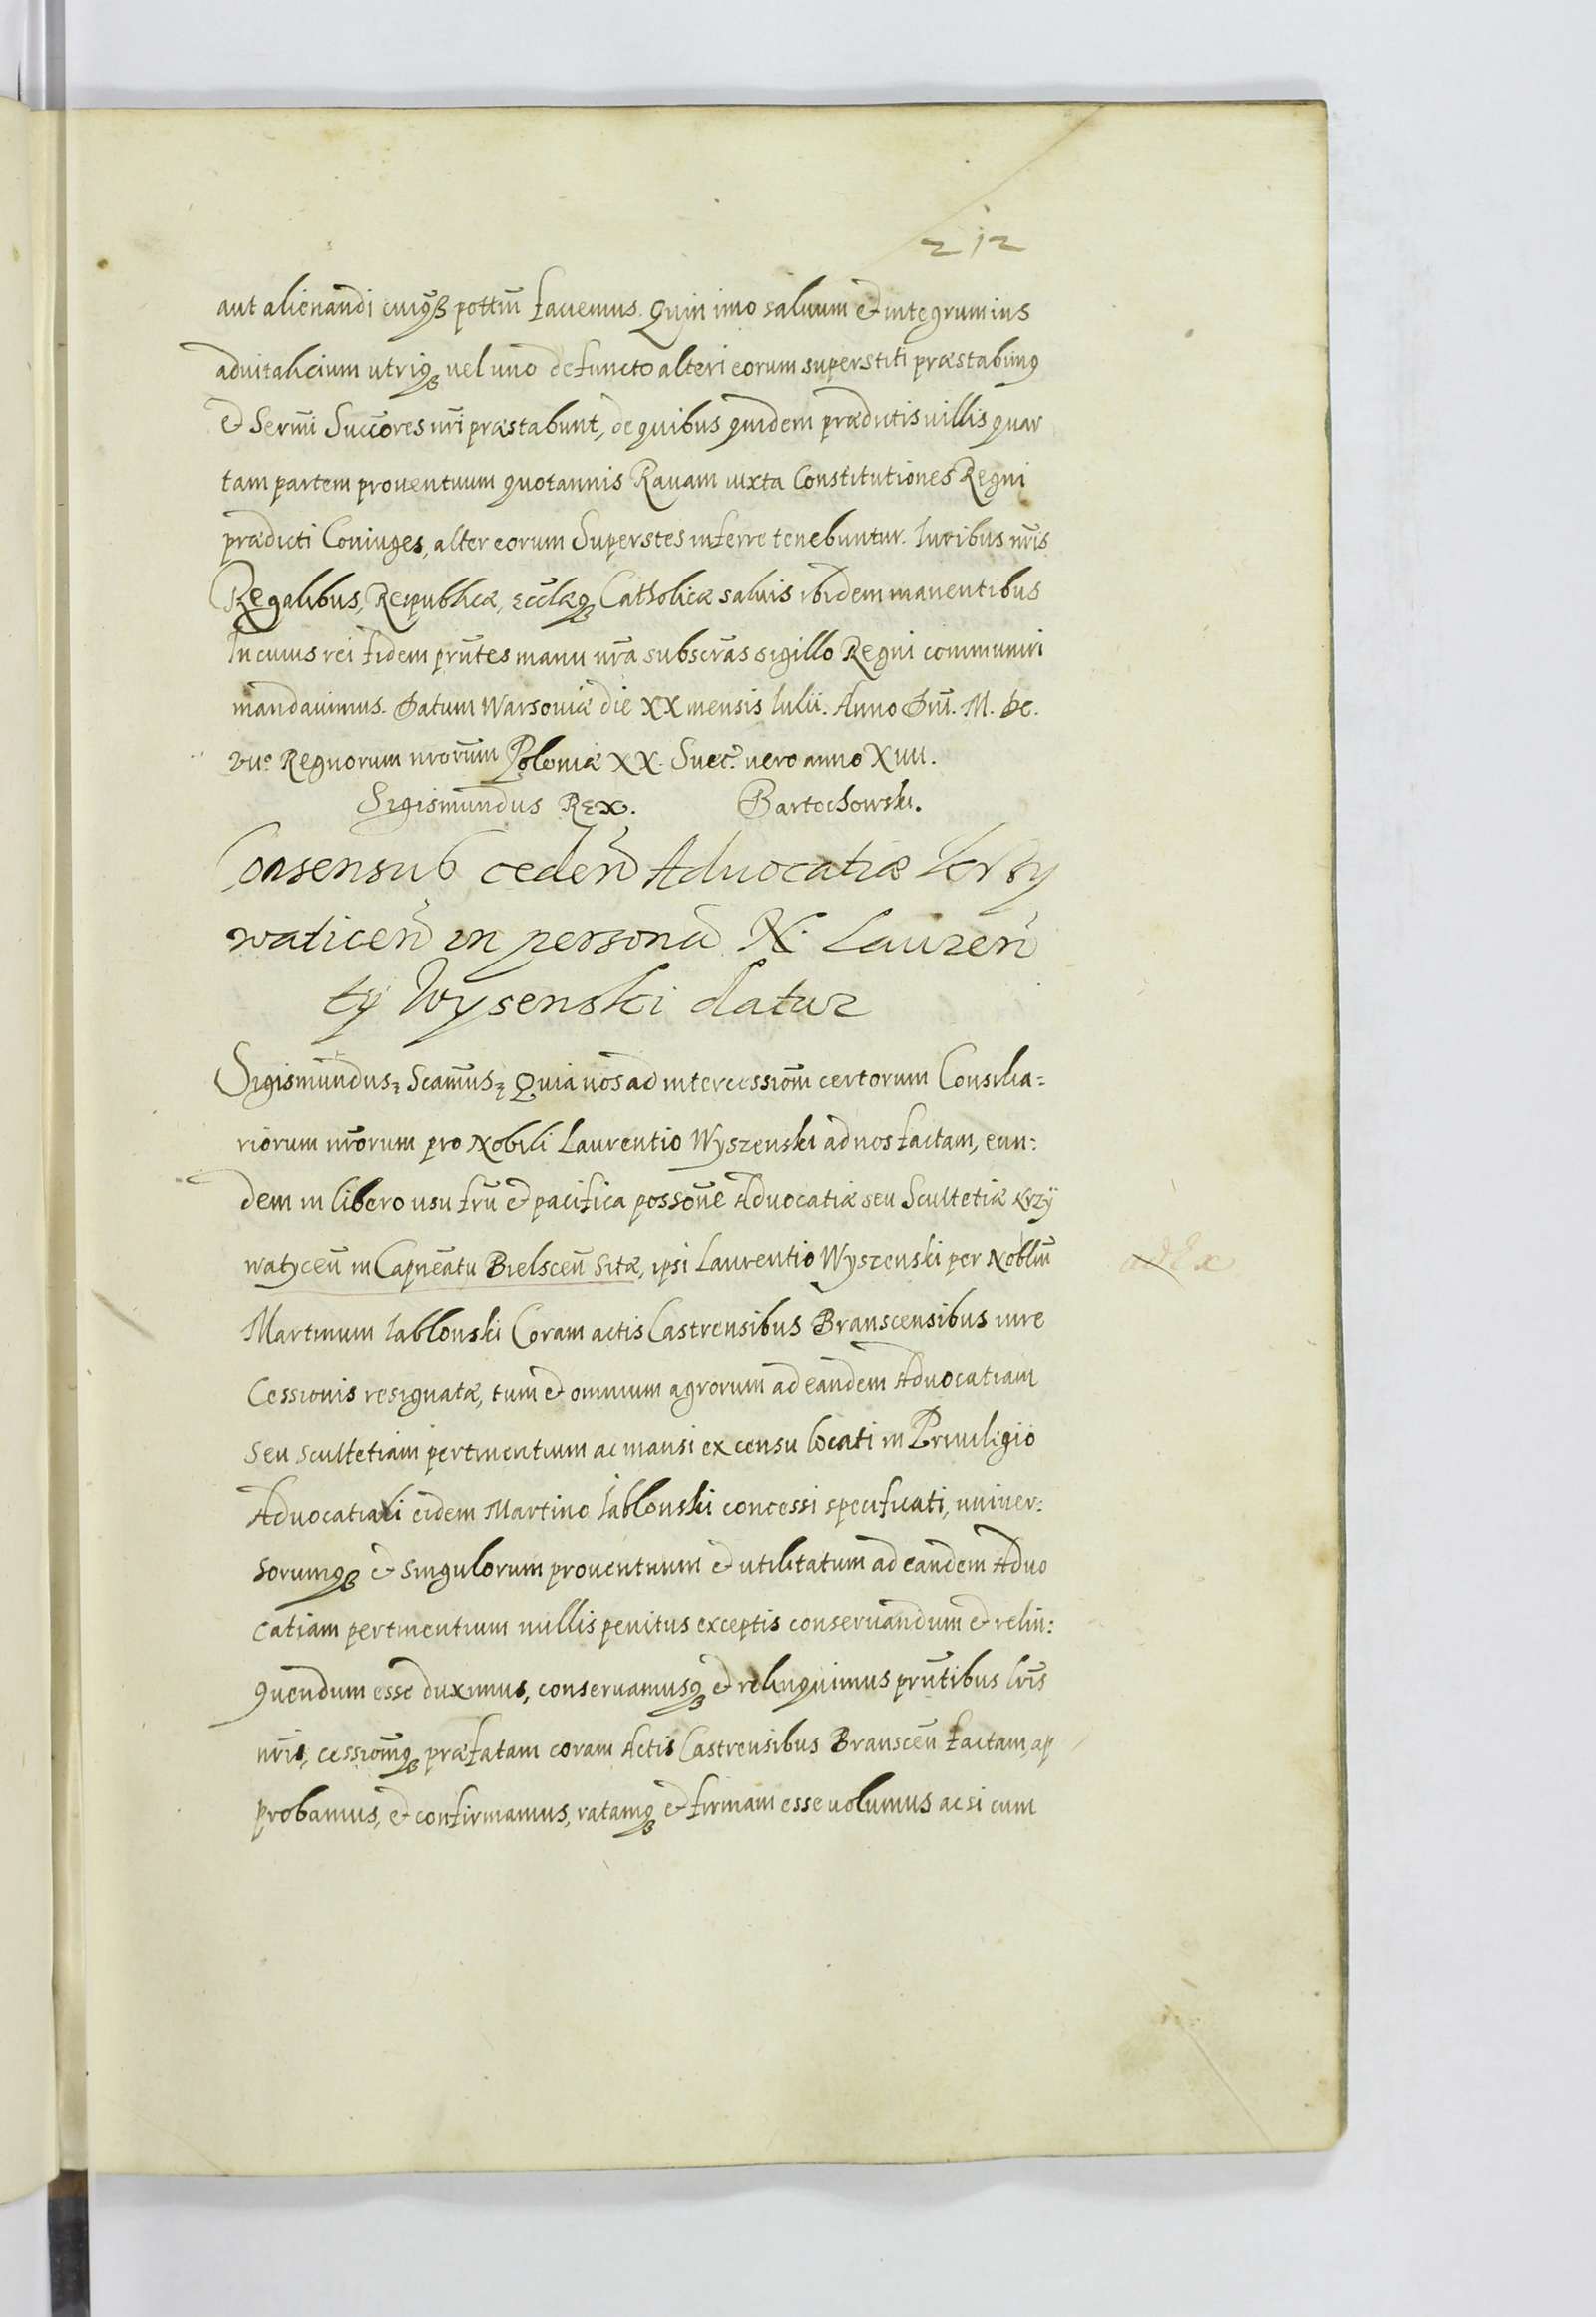 212
aut alienandi cuiqȝ pottm̃ faciemus. Quin imo saluum et integrum ius
aduitalicium utriqȝ uel uno defuncto alteri eorum superstiti præstabimq
et Serm̃i Succores nr̃i præstabunt, de quibus quidem prædictis uillis quar
tam partem prouentuum quotannis Rauam iuxta Constitutiones Regni
prædicti Coniuges, alter eorum Superstes inferre tenebuntur. Iuribus nr̃is
Regalibus, Reipublicæ, Eccl̃æqȝ Catholicæ saluis ibidem manentibus
In cuius rei fidem prñtes manu nr̃a subscr̃as sigillo Regni communiri
mandauimus. Datum Warsouiæ die XX mensis Iulii. Anno Dnĩ. M. DC.
VIIº Regnorum nrorũm Poloniæ XX. Suec̃. uero anno XIIII.
Sigismundus Rex. Bartochowski.
Consensus cedeñ Aduocatiæ Krzy
waticeñ in personã N. Lauren
tij Wysenski datur
Sigismundus ꝛ Scam̃us ꝛ Quia nos ad intercessiom̃ certorum Consilia=
riorum nr̃orum pro Nobili Laurentio Wyszenski ad nos factam, eun:
dem in libero usu fru᷉ et pacifica posso᷉ne Aduocatiæ seu Scultetiæ Krzÿ
watyceñ in Capneãtu Bielsceñ Sitæ, ipsi Laurentio Wyszenski per Nobl̃m
Martinum Iablonski Coram actis Castrensibus Branscensibus iure
Cessionis resignatæ, tum et omnium agrorum ad eandem Aduocatiam
seu Scultetiam pertinentium ac mansi ex censu locati in Priuiligio
Aduocatiali eidem Martino Iablonski concessi specificati, uniuer:
sorumqȝ et singulorum prouentuum et utilitatum ad eandem Aduo
catiam pertinentium nullis penitus exceptis conseruandum et relin:
quendum esse duximus, conseruamusqȝ et relinquimus prñtibus lr̃is
nr̃is, cessiom̃qȝ præfatam coram Actis Castrensibus Bransceñ factam, ap
probamus, et confirmamus, ratamqȝ et firmam esse uolumus ac si cum